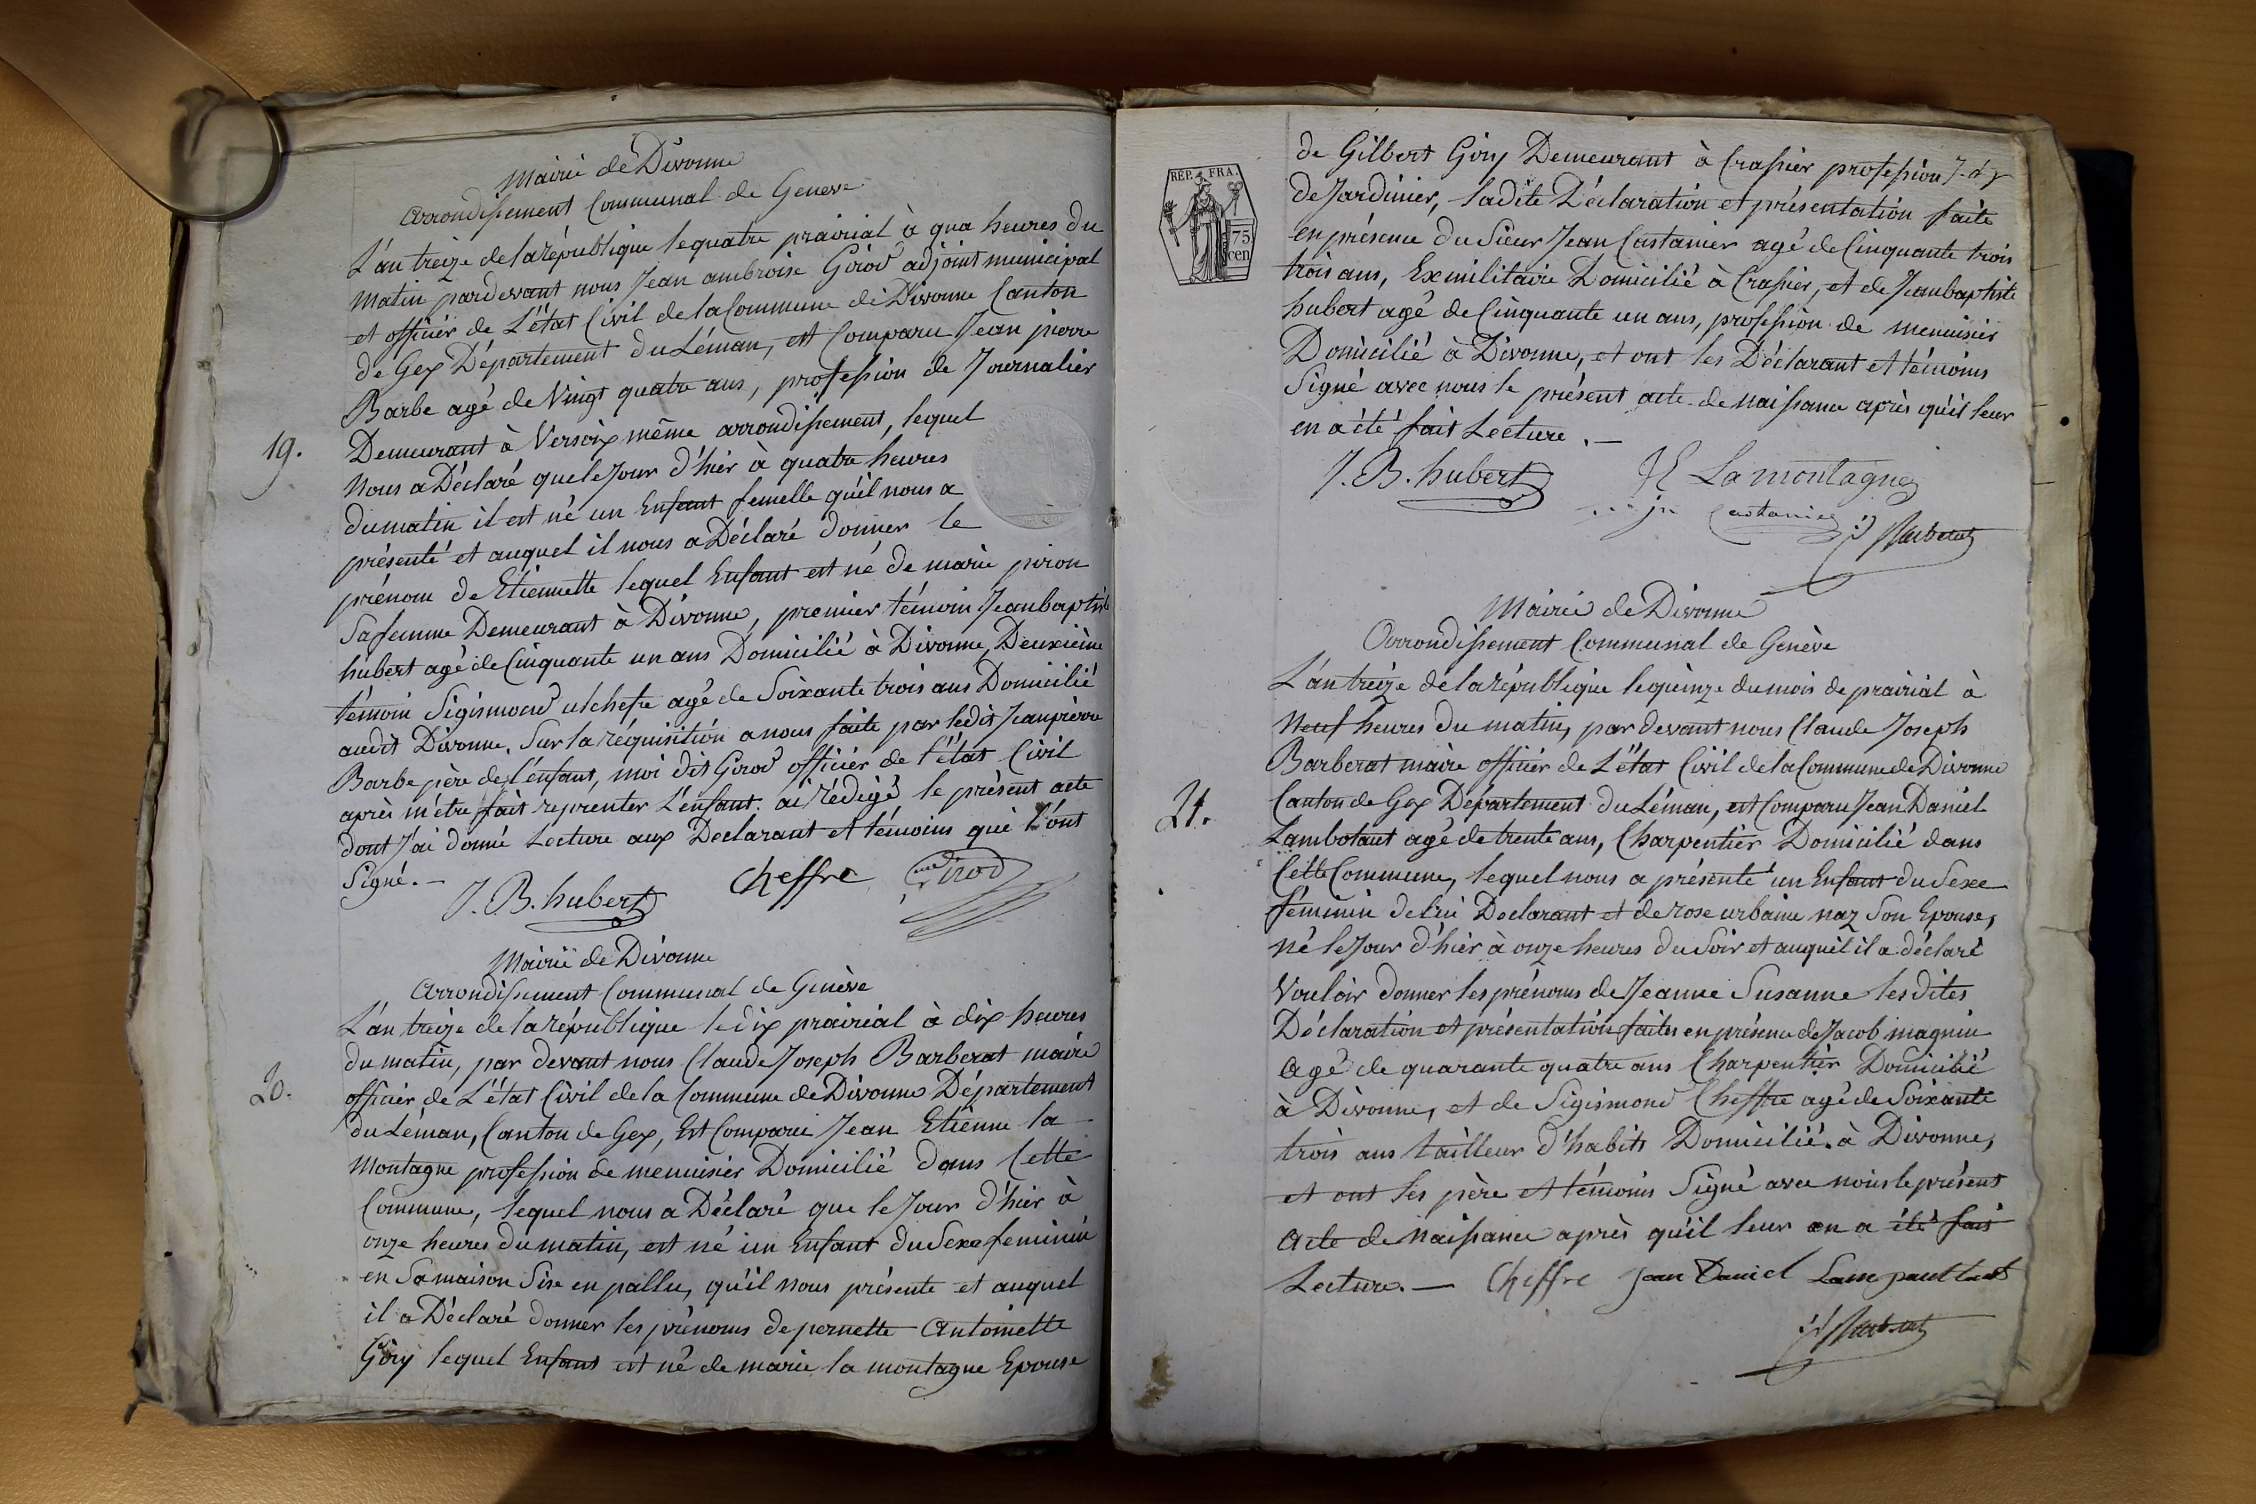 Mairie de Divonne
Arrondissement Communal de Geneve
L'an treize de la république le quatre prairial à qua heures du
matin pardevant nous Jean ambroise Girod adjoint municipal
et officier de L'état Civil de la Commune de Divonne Canton
de Gex Département du Léman, est Comparu Jean pierre
Barbe agé de Vingt quatre ans, profession de Journalier
19. Demeurant à Versoix même arrondissement, lequel
Nous a Déclaré que le Jour d'hier à quatre heures
du matin il est né un Enfant femelle qu'il nous a
présenté et auquel il nous a Déclaré donner le
prénom de Etiennette lequel Enfant est né de marie piron
Sa femme Demeurant à Divonne, premier témoin Jean baptiste
hubert agé de Cinquante un ans Domicilié à Divonne, Deuxième
témoin Sigismond agé de Soixante trois ans Domicilié
audit Divonne. Sur la réquisition a nous faite par ledit Jean pierre
Barbe père de l'enfant, moi dit Girod officier de l'état Civil
après m'être fait reprenter L'enfant. ai rédigé le présent acte
dont J'ai donné Lecture aux Declarant et témoins qui l'ont
Signé. —
J. B. hubert Cheffre Girod
Mairie de Divonne
Arrondissement Communal de Genève
L'an treize de la république le dix prairial à dix heures
du matin, par devant nous Claude Joseph Barberat maire
20. officier de L'état Civil de la Commune de Divonne Département
du Léman, Canton de Gex, Est Comparu Jean Etienne la
Montagne profession de menuisier Domicilié dans Cette
Commune, lequel nous a Déclaré que le Jour d'hier à
onze heures du matin, est né un Enfant du Sexe feminin
en Sa maison Sise en, qu'il nous présente et auquel
il a Déclaré donner les prénoms de pernette Antoinette
Gôry lequel Enfant est né de marie la montagne Epouse
REP. FRA.
75
cen
de Gilbert Góry Demeurant à Crassier profession
de Jardinier, ladite Déclaration et présentation faite
en présence du Sieur Jean Castanier agé de Cinquante trois
trois ans, Exmilitaire Domicilié à Crassier, et de Jean baptiste
hubert agé de Cinquante un ans, profession de menuisier
Domicilié à Divonne, et ont les Déclarant et témoins
Signé avec nous le présent acte de naissance après qu'il leur
en a été fait Lecture. —
J. B. hubert Lamontagne
Castanier
Barberat
Mairie de Divonne
Arrondissement Communal de Genève
L'an treize de la république le quinze du mois de prairial à
Neuf heures du matin, par devant nous Claude Joseph
Barberat maire officier de L'état Civil de la Commune de Divonne
21. Canton de Gex Département du Léman, est Comparu Jean Daniel
Lambotant agé de trente ans, Charpentier Domicilié dans
Cette Commune, lequel nous a présenté un Enfant du Sexe
féminin de lui Declarant et de rose urbaine naz Son Epouse,
né le Jour d'hier à onze heures du Soir et auquel il a déclaré
Vouloir donner les prénoms de Jeanne Susanne les dites
Déclaration et présentation faites en présence de Jacob magnin
agé de quarante quatre ans Charpentier Domicilié
à Divonne, et de Sigismond Cheffre agé de Soixante
trois ans tailleur d'habits Domicilié à Divonne,
et ont les père et témoins Signé avec nous le présent
acte de Naissance après qu'il leur en a été fait
Lecture. — Cheffre Jean Daniel
Barberat